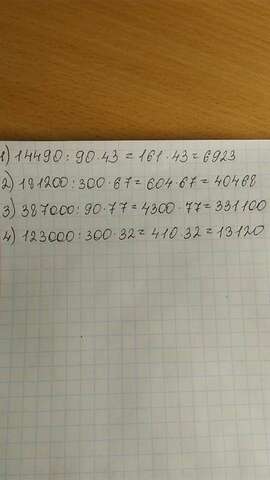 1) 14490 : 90 · 43 = 161 · 43 = 6923
2) 181200 : 300 · 67 = 604 · 67 = 40468
3) 387000 : 90 · 77 = 4300 · 77 = 331100
4) 123000 : 300 · 32 = 410 · 32 = 13120